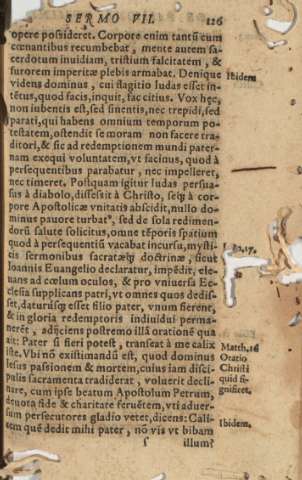 SERMO VII. 126
opere possideret. Corpore enim tantũ cum
cœnantibus recumbebat, mente autem sa-
cerdotum inuidiam, tristium falcitatem, &
furorem imperitæ plebis armabat. Denique
videns dominus, cui flagitio Iudas esset in-
tẽtus, quod facis, inquit, fac citius. Vox hęc,
non iubentis est, sed sinentis, nec trepidi, sed
parati, qui habens omnium temporum po-
testatem, ostendit se moram non facere tra-
ditori, & sic ad redemptionem mundi pater-
nam exequi voluntatem, vt facinus, quod à
persequentibus parabatur, nec impelleret,
nec timeret. Postquam igitur Iudas persua-
sus à diabolo, discessit à Christo, seq́ à cor-
pore Apostolicæ vnitatis abscidit, nullo do-
minus pauore turbatꝰ, sed de sola redimen-
dorũ salute solicitus, omne tẽporis spatium
quod à persequentiũ vacabat incursu, mysti-
cis sermonibus sacratæq́ doctrinæ, sicut
Ioannis Euangelio declaratur, impẽdit, ele-
uans ad cœlum oculos, & pro vniuersa Ec-
clesia supplicans patri, vt omnes quos dedis-
set, daturusq́ esset filio pater, vnum fierent,
& in gloria redemptoris indiuidui perma-
nerẽt, adijciens postremo illã orationẽ qua
ait: Pater si fieri potest, transeat à me calix
iste. Vbi nõ existimandũ est, quod dominus
Iesus passionem & mortem, cuius iam disci-
pulis sacramenta tradiderat, voluerit decli-
nare, cum ipse beatum Apostolum Petrum,
deuota fide & charitate feruẽtem, vti aduer-
sum persecutores gladio vetet, dicens: Cali-
cem quẽ dedit mihi pater, nõ vis vt bibam
f illum?
Ibidem
17.
Matth. 26
Oratio
Christi
quid si-
gnificet.
Ibidem.